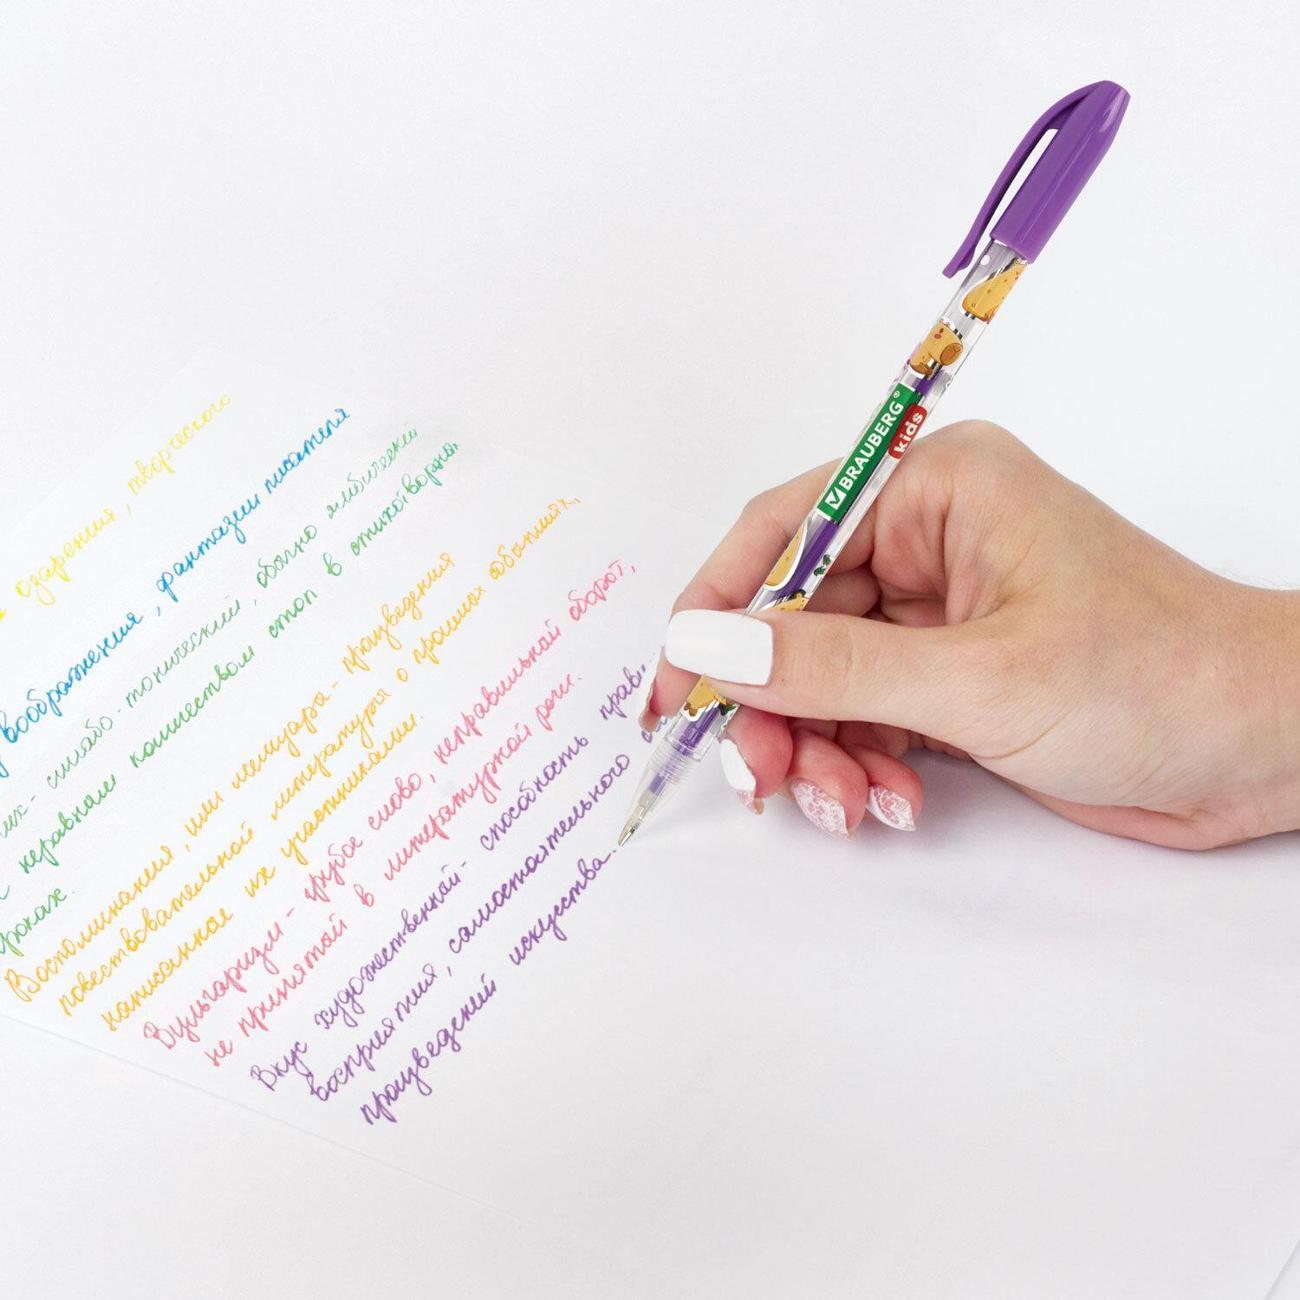 озарения, творческого
воображения, фантазии писателя
силлабо-тонический, обычно ямбический
неравным количеством стоп в стихотворных
строках.
Воспоминания, или мемуары - произведения
повествовательной литературы о прошлых событиях,
написанное их участниками.
Вульгаризм - грубое слово, неправильный оборот,
не принятой в литературной речи.
Вкус художественный - способность прави
восприятия, самостоятельного
произведений искусства.
BRAUBERG®
kids